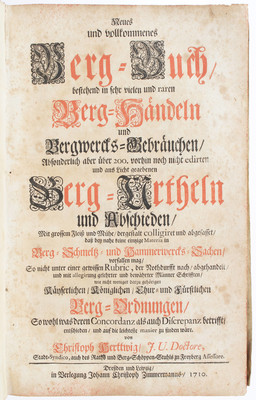 Neues
und vollkommenes
Berg-Buch/
bestehend in sehr vielen und raren
Berg-Händeln
und
Bergwercks-Gebräuchen/
Absonderlich aber über 200. vorhin noch nicht edirten
und ans Licht gegebenen
Berg-Urtheln
und Abschieden/
Mit grossem Fleiß und Mühe/ dergestalt colligiret und abgefasset/
daß bey nahe keine eintzige Materia in
Berg-Schmeltz- und Hammerwercks-Sachen/
vorfallen mag/
So nicht unter einer gewissen Rubric, der Nothdurfft nach/ abgehandelt/
und mit allegirung gelehrter und bewährter Männer Schrifften/
wie nicht weniger derer gehörigen
Käyserlichen/ Königlichen/ Chur- und Fürstlichen
Berg-Ordnungen/
So wohl was deren Concordanz als auch Discrepanz betrifft/
entschieden/ und auf die leichteste manier zu finden wäre.
von
Christoph Herttwig/ J. U. Doctore,
Stadt-Syndico, auch des Raths und Berg-Schöppen-Stuhls zu Freyberg Assessore.
Dresden und Leipzig/
in Verlegung Johann Christoph Zimmermanns/ 1710.